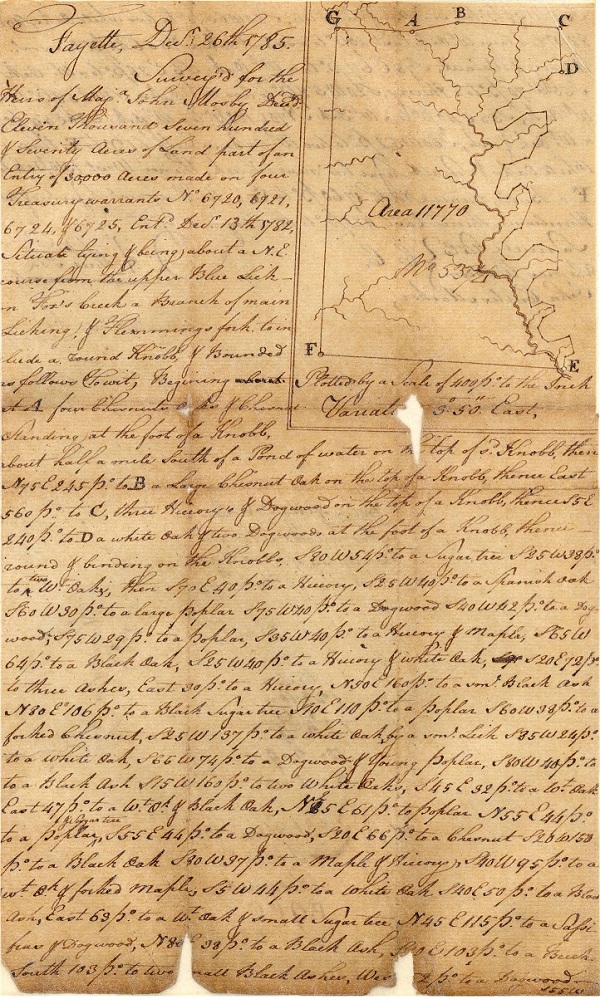 Fayette, Decr. 26th 1785.
Survey'd for the
Heirs of Majr. John Mosby, Decd.
Eleven Thousand Seven hundred
& Seventy Acres of Land part of an
Entry of 30,000 Acres made on four
Treasury warrants No. 6720, 6721,
6724, & 6725, Entd. Decr. 13th 1782,
Situate lying & being about a N.E
course from the upper Blue Lick
on Fox's Creek a Branch of main
Licking & Flemmings fork, to in
clude a round Knobb, & Bounded
as follows Towit, Begining
at A four Chesnuts
Standing at the foot of a Knobb,
G A B C
D
Area 11770
F E
Plotted by a Scale of 400 po. to the Inch
Variat 3°.50" East,
about half a mile South of a Pond of water on the top of sd. Knobb, thence
N75E 245 po. to B a Large Chesnut Oak on the top of a Knobb, thence East
560 po. to C, three Hickory's & Dogwood on the top of a Knobb, thence S5E
240 po. to D a white Oak & two Dogwoods at the foot of a Knobb, thence
round & binding on the Knobbs, S20W 54 po. to a Sugar tree S25W 38 po.
to two Wt. Oaks, then E 40 po. to a Hicory, S25W 40 po. to a Spanish Oak
S60W 30 po. to a large poplar S75W 40 po. to a Dogwood S40W 42 po. to a Dog
wood, S75W 29 po. to a poplar, S35W 40 po. to a Hicory & Maple, S65W
64 po. to a Black Oak, S25W 40 po. to a Hicory & white Oak, S20E 72 po.
to three Ashes, East 30 po. to a Hicory, N50E 160 po. to a sml. Black Ash
N80E 106 po. to a Black Sugar tree S40E 110 po. to a poplar S60W 38 po. to a
forked Chesnut, S25W 137 po. to a white Oak by a sml. Lick S85W 24 po.
to a white Oak, S66W 74 po. to a Dogwood & Young poplar, S40W 40 po. to
to a Black Ash S15W 160 po. to two White Oaks, S45E 32 po. to a Wt. Oak
East 47 po. to a Wt. Ok & Black Oak, N35E 61 po. to poplar N55E 44 po.
to a poplar & Sugar tree, S55E 44 po. to a Dogwood, S20E 66 po. to a Chesnut S20W 150
po. to a Black Oak S30W 37 po. to a Maple & Hicory, S40W 95 po. to a
wt. Ok & forked Maple, S5W 44 po. to a White Oak S40E 50 po. to a Black
Ash, East 63 po. to a Wt. Oak & small Sugar tree N45E 115 po. to a Sassi
fras & Dogwood, E 38 po. to a Black Ash, E 103 po. to a Beech
South 103 po. to two small Black Ashes, po. to a Dogwood
S55W